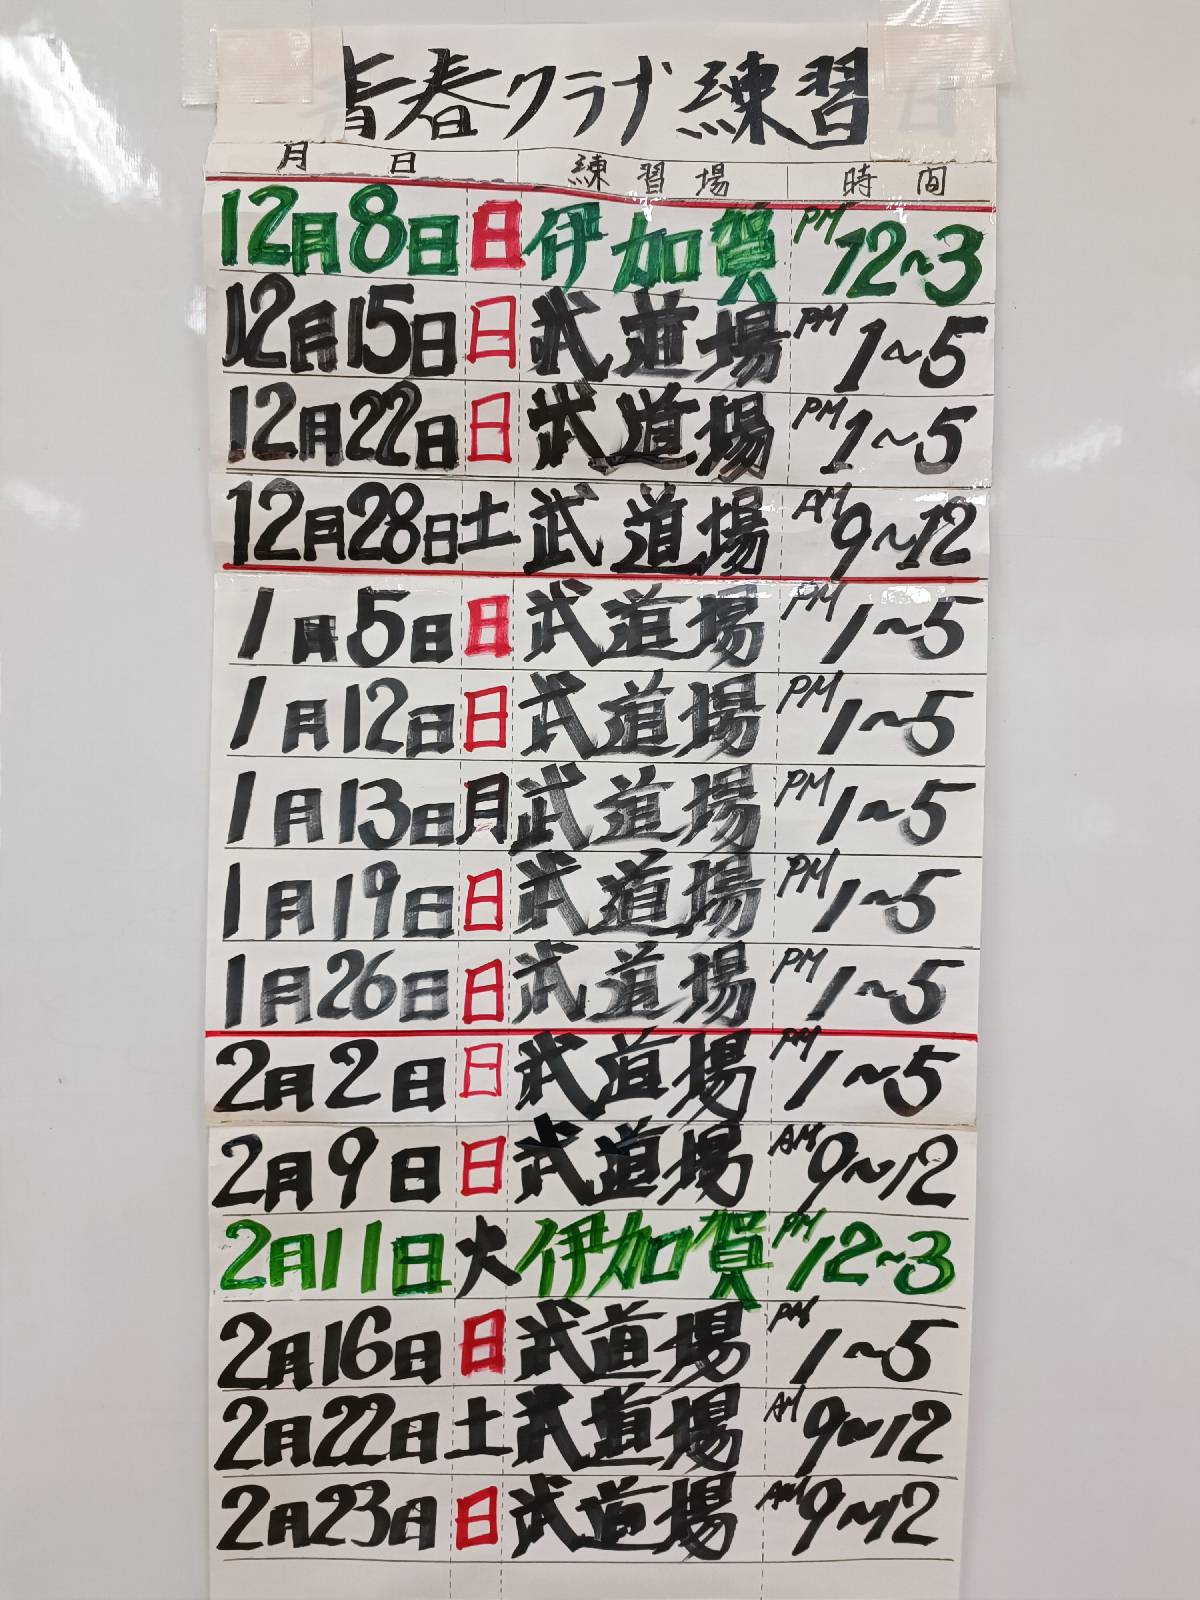 青春クラブ練習日
月 日 練習場 時間
12月8日 日 伊加賀 PM 12~3
12月15日 日 武道場 PM 1~5
12月22日 日 武道場 PM 1~5
12月28日 土 武道場 AM 9~12
1月5日 日 武道場 PM 1~5
1月12日 日 武道場 PM 1~5
1月13日 月 武道場 PM 1~5
1月19日 日 武道場 PM 1~5
1月26日 日 武道場 PM 1~5
2月2日 日 武道場 PM 1~5
2月9日 日 武道場 AM 9~12
2月11日 火 伊加賀 PM 12~3
2月16日 日 武道場 PM 1~5
2月22日 土 武道場 AM 9~12
2月23日 日 武道場 AM 9~12